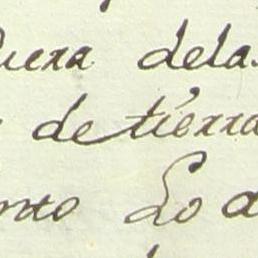 uera dela
de tierra
nto Lo a